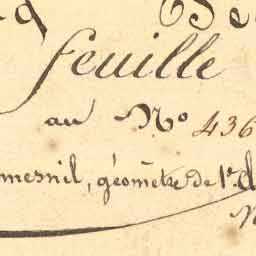 feuille
au N° 436
mesnil, géomètre de 1re